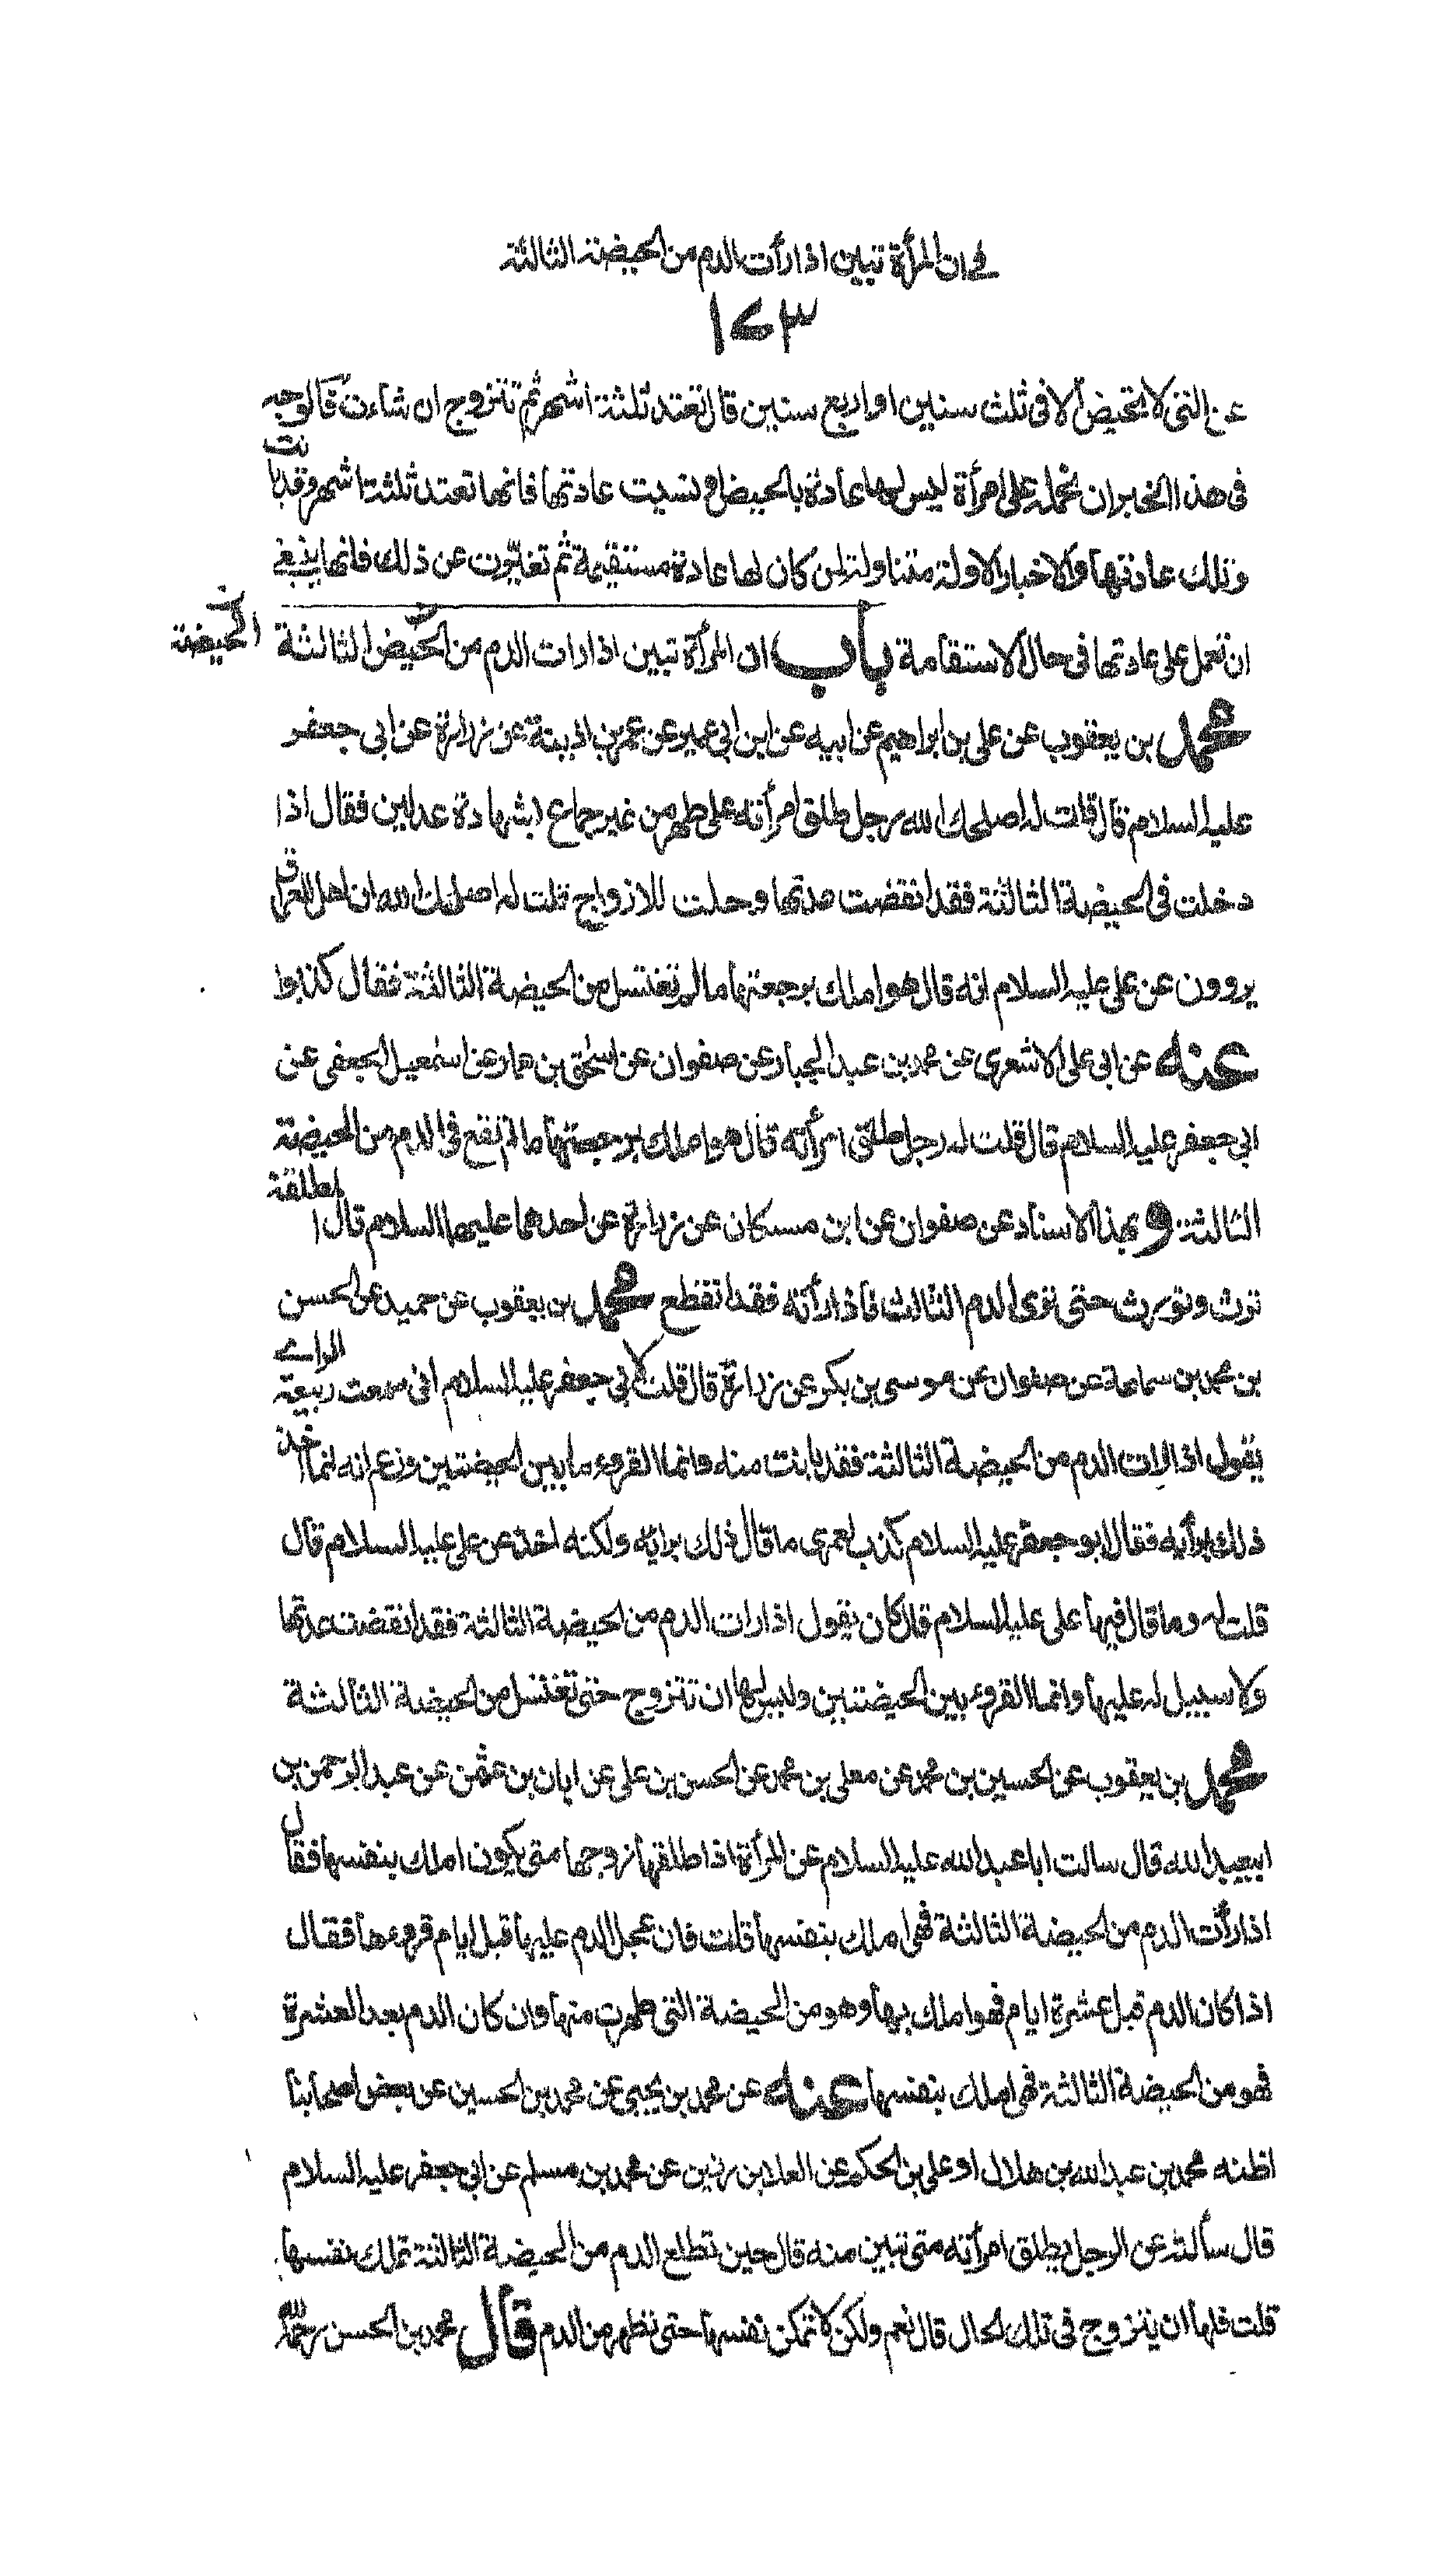 في ان المرأة تبين اذا رأت الدم من الحيضة الثالثة
١٧٣
عن التي لا تحيض الا في ثلث سنين او اربع سنين قال تعتد ثلثة اشهر ثم تتزوج ان شاءت فالوجه
في هذا الخبر ان نحمله على امرأة ليس لها عادة بالحيض او نسيت عادتها فانها تعتد ثلثة اشهر وقد بانت
وتلك عادتها والاخبار الاولة متناولة لمن كان لها عادة مستقيمة ثم تغيرت عن ذلك فانها ينبغي
ان تعمل على عادتها في حال الاستقامة باب ان المرأة تبين اذا رات الدم من الحيض الثالثة
الحيضة
محمد بن يعقوب عن علي بن ابراهيم عن ابيه عن ابن ابي عمير عن عمر بن اذينة عن زرارة عن ابي جعفر
عليه السلام قال قلت له اصلحك الله رجل طلق امرأته على طهر من غير جماع بشهادة عدلين فقال اذا
دخلت في الحيضة الثالثة فقد انقضت عدتها وحلت للازواج قلت له اصلحك الله ان اهل العراق
يروون عن علي عليه السلام انه قال هو املك برجعتها ما لم تغتسل من الحيضة الثالثة فقال كذبوا
عنه عن ابي علي الاشعري عن محمد بن عبد الجبار عن صفوان عن اسحق بن عمار عن اسمعيل الجعفي عن
ابي جعفر عليه السلام قال قلت له رجل طلق امرأته قال هو املك برجعتها ما لم تقع في الدم من الحيضة
الثالثة وبهذا الاسناد عن صفوان عن ابن مسكان عن زرارة عن احدهما عليهما السلام قال المطلقة
ترث وتورث حتى ترى الدم الثالث فاذا رأته فقد انقطع محمد بن يعقوب عن حميد عن الحسن
بن محمد بن سماعة عن صفوان عن موسى بن بكر عن زرارة قال قلت لابي جعفر عليه السلام اني سمعت ربيعة الراي
يقول اذا رات الدم من الحيضة الثالثة فقد بانت منه وانما القروء ما بين الحيضتين وزعم انه انما اخذ
ذلك برأيه فقال ابو جعفر عليه السلام كذب لعمري ما قال ذلك برايه ولكنه اخذه عن علي عليه السلام قال
قلت له وما قال فيها علي عليه السلام قال كان يقول اذا رات الدم من الحيضة الثالثة فقد انقضت عدتها
ولا سبيل له عليها وانما القروء بين الحيضتين وليس لها ان تتزوج حتى تغتسل من الحيضة الثالثة
محمد بن يعقوب عن الحسين بن محمد عن معلى بن محمد عن الحسن بن علي عن ابان بن عثمن عن عبد الرحمن بن
ابي عبد الله قال سالت ابا عبد الله عليه السلام عن المرأة اذا طلقها زوجها متى يكون املك بنفسها فقال
اذا رأت الدم من الحيضة الثالثة فهي املك بنفسها قلت فان عجل الدم عليها قبل ايام قروءها فقال
اذا كان الدم قبل عشرة ايام فهو املك بها وهو من الحيضة التي طهرت منها وان كان الدم بعد العشرة
فهو من الحيضة الثالثة فهي املك بنفسها عنه عن محمد بن يحيى عن محمد بن الحسين عن بعض اصحابنا
اظنه محمد بن عبد الله بن هلال او علي بن الحكم عن العلا بن رزين عن محمد بن مسلم عن ابي جعفر عليه السلام
قال سألته عن الرجل يطلق امرأته متى تبين منه قال حين تطلع الدم من الحيضة الثالثة تملك نفسها
قلت فلها ان يتزوج في تلك الحال قال نعم ولكن لا تمكن نفسها حتى تطهر من الدم قال محمد بن الحسن رحمه الله